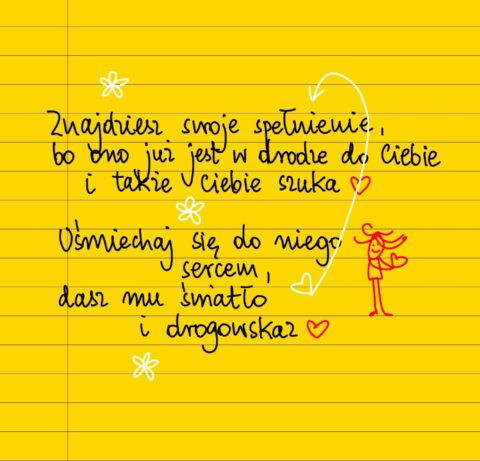 Znajdziesz swoje spełnienie,
bo ono już jest w drodze do Ciebie
i także Ciebie szuka
Uśmiechaj się do niego
sercem,
dasz mu światło
i drogowskaz